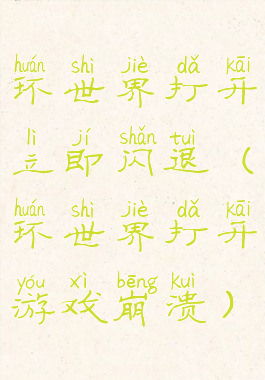 huán shì jiè dǎ kāi
环世界打开
lì jí shǎn tuì
立即闪退（
huán shì jiè dǎ kāi
环世界打开
yóu xì bēng kuì
游戏崩溃）